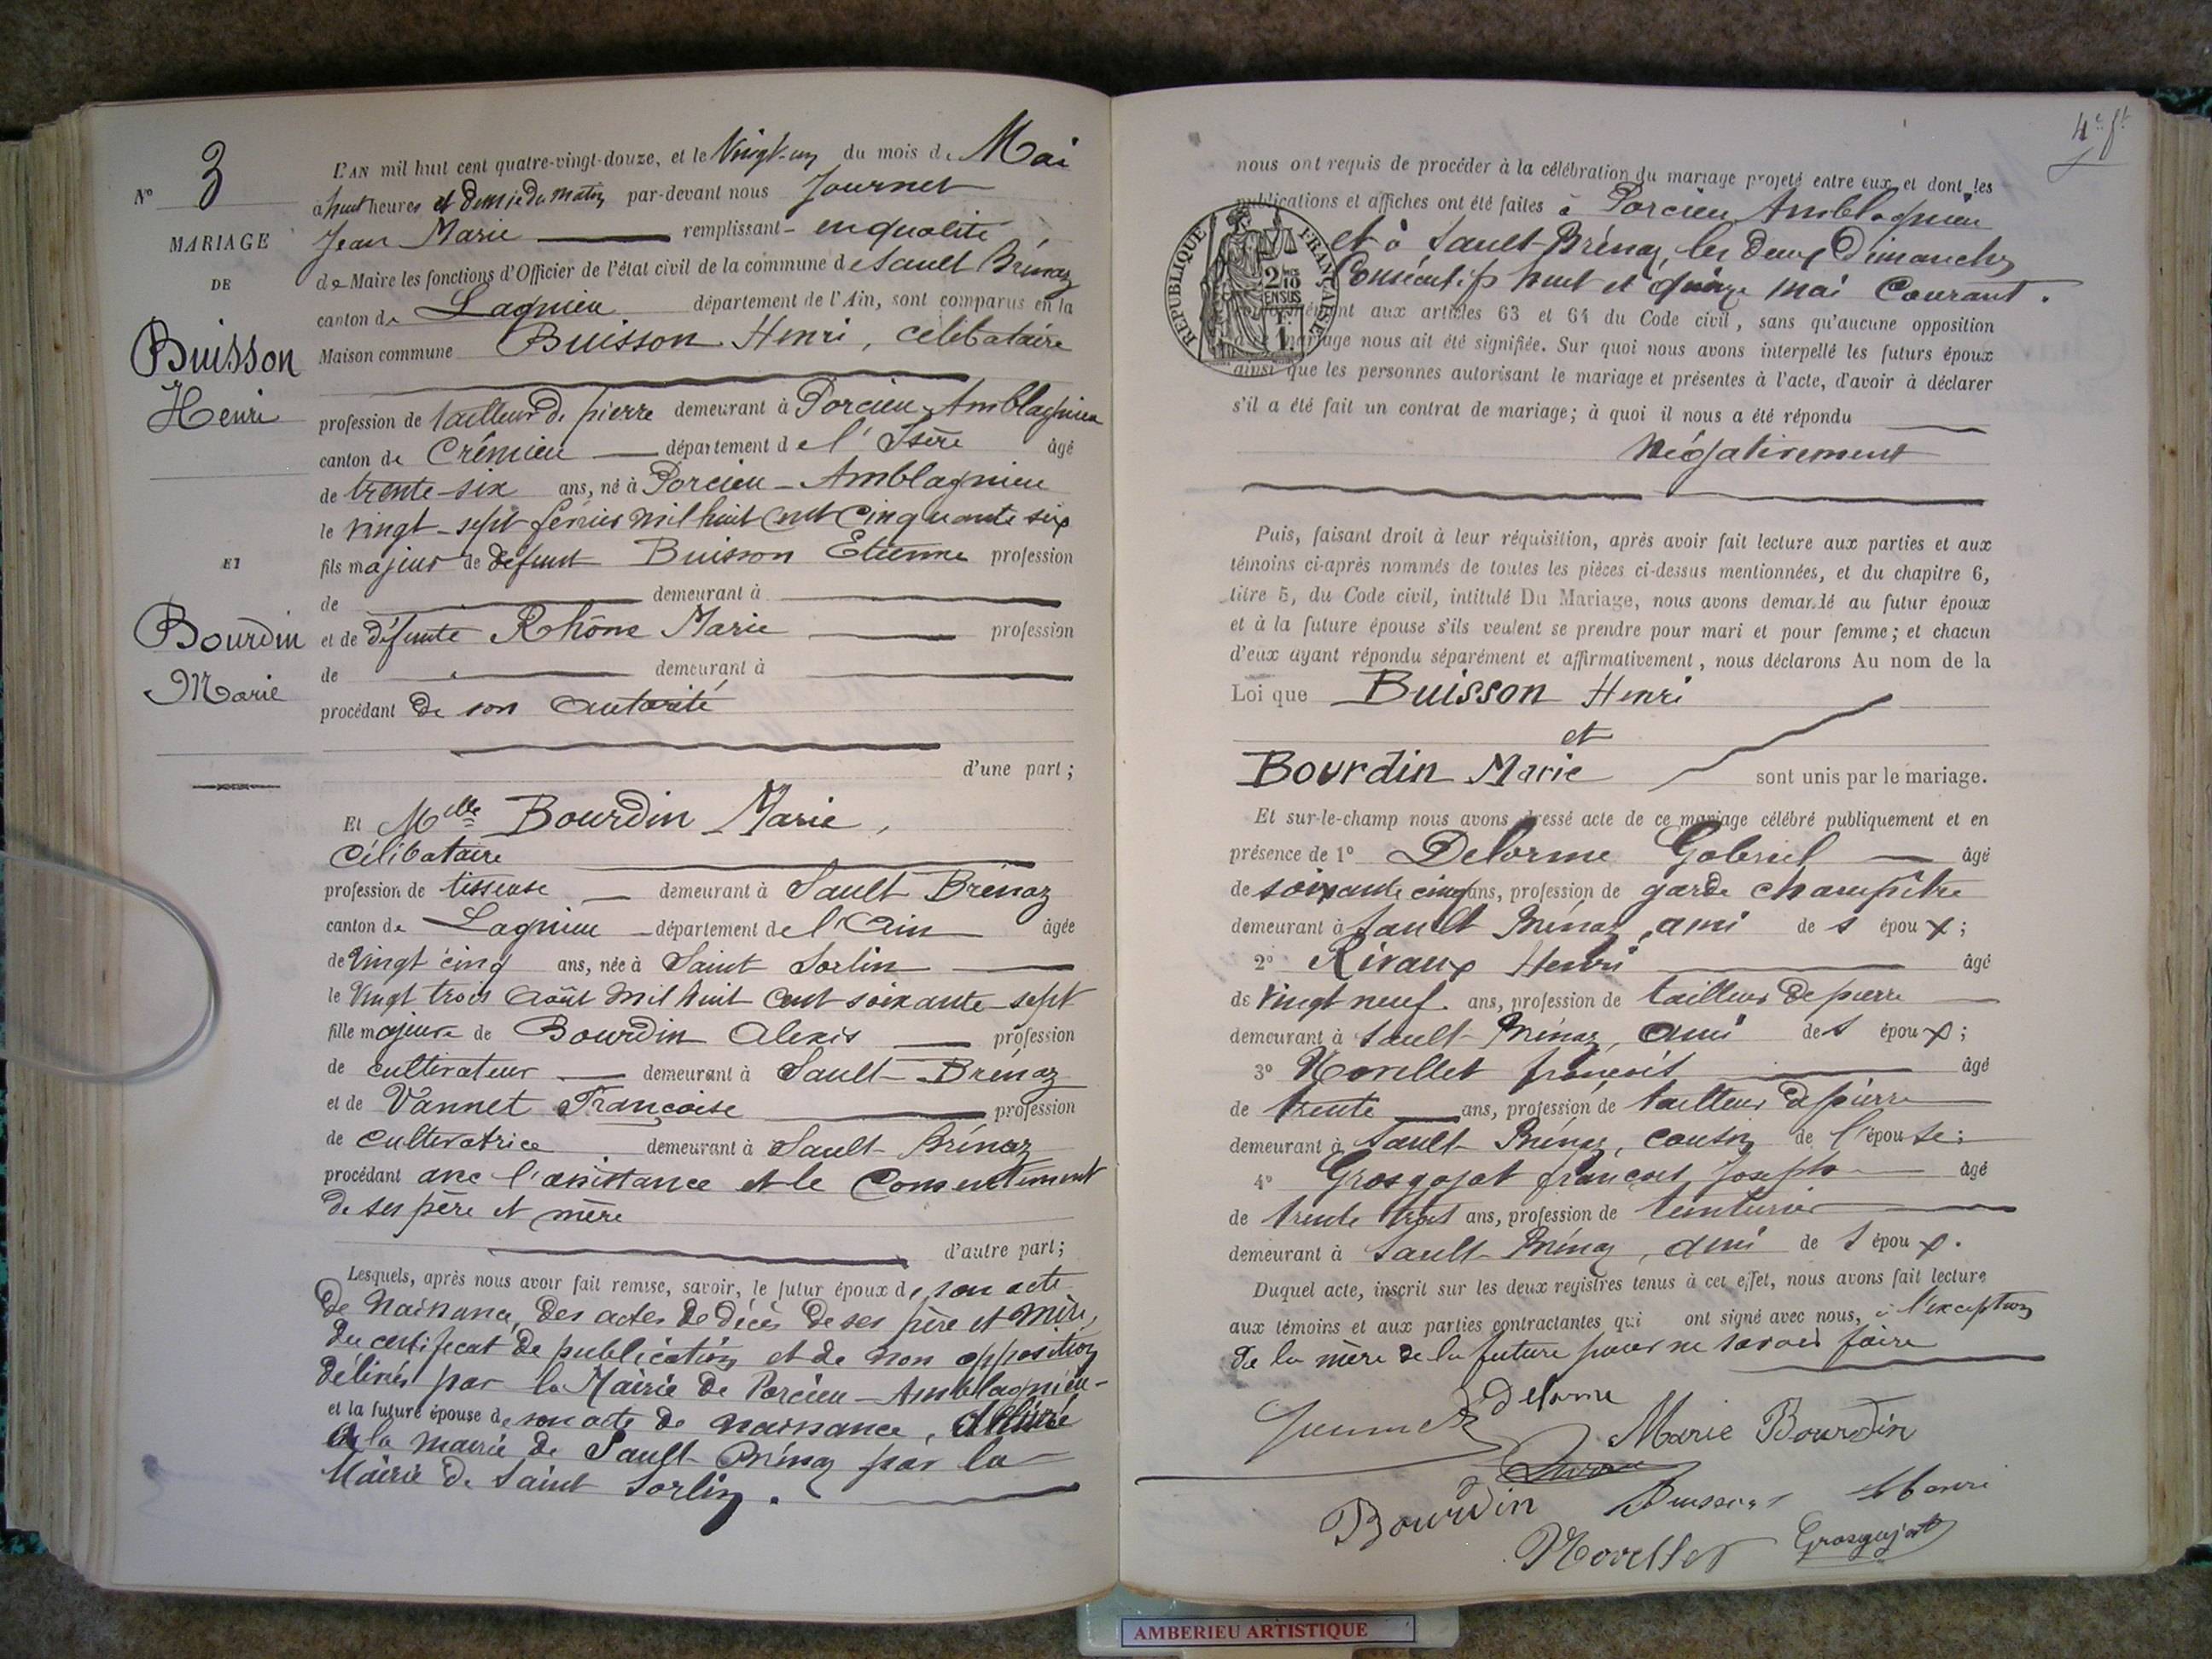 N° 3
MARIAGE
DE
Buisson
Henri
ET
Bourdin
Marie
L'AN mil huit cent quatre-vingt-douze, et le Vingt-un du mois de Mai
à huit heures et demie du matin par-devant nous Journet
Jean Marie remplissant en qualité
de Maire les fonctions d'Officier de l'état civil de la commune de Sault Brénaz
canton de Lagnieu département de l'Ain, sont comparus en la
Maison commune Buisson Henri, célibataire
profession de tailleur de pierre demeurant à Porcieu-Amblagnieu
canton de Crémieu département de l'Isère âgé
de trente-six ans, né à Porcieu-Amblagnieu
le vingt-sept février mil huit cent cinquante six
fils majeur de défunt Buisson Etienne profession
de demeurant à
et de défunte Rhône Marie profession
de demeurant à
procédant de son autorité
d'une part;
Et Melle Bourdin Marie,
célibataire
profession de tisseuse demeurant à Sault Brénaz
canton de Lagnieu département de l'Ain âgée
de vingt cinq ans, née à Saint Sorlin
le vingt trois août mil huit cent soixante-sept
fille majeure de Bourdin Alexis profession
de cultivateur demeurant à Sault-Brénaz
et de Vannet Françoise profession
de cultivatrice demeurant à Sault-Brénaz
procédant avec l'assistance et le consentement
de ses père et mère
d'autre part;
Lesquels, après nous avoir fait remise, savoir, le futur époux de son acte
de naissance, des actes de décès de ses père et mère,
du certificat de publication et de non opposition
délivrés par la Mairie de Porcieu-Amblagnieu-
et la future épouse de son acte de naissance, délivré
à la mairie de Sault-Brénaz par la
Mairie de Saint Sorlin.
4e ft
nous ont requis de procéder à la célébration du mariage projeté entre eux et dont les
publications et affiches ont été faites à Porcieu Amblagnieu
et à Sault-Brénaz, les deux Dimanches
Consécutifs huit et quinze mai Courant.
RÉPUBLIQUE FRANÇAISE
2/10 EN SUS
conformément aux articles 63 et 64 du Code civil, sans qu'aucune opposition
mariage nous ait été signifiée. Sur quoi nous avons interpellé les futurs époux
ainsi que les personnes autorisant le mariage et présentes à l'acte, d'avoir à déclarer
s'il a été fait un contrat de mariage; à quoi il nous a été répondu
Négativement
Puis, faisant droit à leur réquisition, après avoir fait lecture aux parties et aux
témoins ci-après nommés de toutes les pièces ci-dessus mentionnées, et du chapitre 6,
titre 5, du Code civil, intitulé Du Mariage, nous avons demandé au futur époux
et à la future épouse s'ils veulent se prendre pour mari et pour femme; et chacun
d'eux ayant répondu séparément et affirmativement, nous déclarons Au nom de la
Loi que Buisson Henri
et
Bourdin Marie sont unis par le mariage.
Et sur-le-champ nous avons dressé acte de ce mariage célébré publiquement et en
présence de 1° Delorme Gabriel âgé
de soixante cinq ans, profession de garde champêtre
demeurant à Sault Brénaz, ami de s époux;
2° Rivaux Henri âgé
de vingt neuf ans, profession de tailleur de pierre
demeurant à Sault-Brénaz, ami de s époux;
3° Novellet françois âgé
de trente ans, profession de tailleur de pierre
demeurant à Sault-Brénaz, cousin de l'épouse;
4° Grosgojat françois Joseph âgé
de trente trois ans, profession de teinturier
demeurant à Sault-Brénaz, ami de s époux.
Duquel acte, inscrit sur les deux registres tenus à cet effet, nous avons fait lecture
aux témoins et aux parties contractantes qui ont signé avec nous, à l'exception
de la mère de la future pour ne savoir faire
Journet Delorme
Marie Bourdin
Bourdin Buisson Henri
Novellet Grosgojat
AMBERIEU ARTISTIQUE